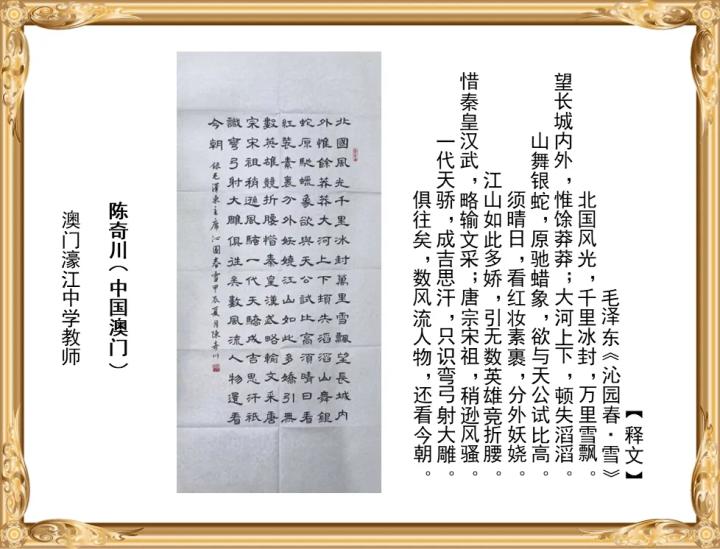 【释文】
毛泽东《沁园春·雪》
北国风光,千里冰封,万里雪飘。
望长城内外,惟馀莽莽;大河上下,顿失滔滔。
山舞银蛇,原驰蜡象,欲与天公试比高。
须晴日,看红妆素裹,分外妖娆。
江山如此多娇,引无数英雄竞折腰。
惜秦皇汉武,略输文采;唐宗宋祖,稍逊风骚。
一代天骄,成吉思汗,只识弯弓射大雕。
俱往矣,数风流人物,还看今朝。
北國風光千里冰封萬里雪飄望長城内
外惟餘莽莽大河上下頓失滔滔山舞銀
蛇原馳蠟象欲與天公試比高須晴日看
紅裝素裹分外妖嬈江山如此多嬌引無
數英雄競折腰惜秦皇漢武略輸文采唐
宗宋祖稍遜風騷一代天驕成吉思汗祇
識彎弓射大雕俱往矣數風流人物還看
今朝 錄毛澤東主席沁園春雪甲辰夏月陳奇川
陈奇川(中国澳门)
澳门濠江中学教师